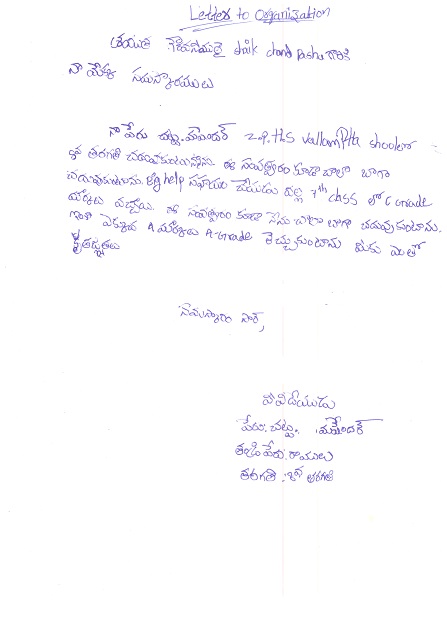 Letter to Organization
శ్రీయుత గౌరవనీయులై Shaik chand Pasha గారికి
నా యొక్క నమస్కారములు
నా పేరు చట్టు. మహేందర్ Z.P.H.S vallampatla shoolలో
8వ తరగతి చదువుకుంటున్నాను. ఈ సంవత్సరం కూడా చాలా బాగా
చదువుకుంటును. help సహాయం చేయడం వల్ల 7th class లో C Grade
మార్కులు వచ్చాయి. ఈ సంవత్సరం కూడా నేను చాలా బాగా చదువుకుంటాను.
ఇంకా ఎక్కువ A మార్కులు A-Grade తెచ్చుకుంటాను మీకు మాతో
కృతజ్ఞతలు
నమస్కారం సార్,
పేరు: చట్టు. మహేందర్
తండ్రి పేరు: రాములు
తరగతి: 8వ తరగతి